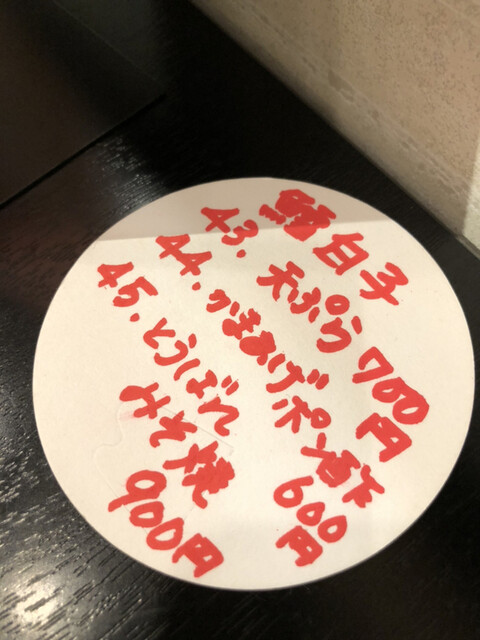 鱈白子
43. 天ぷら 700円
44. かまあげポン酢 600円
45. とうばん
みそ焼
900円